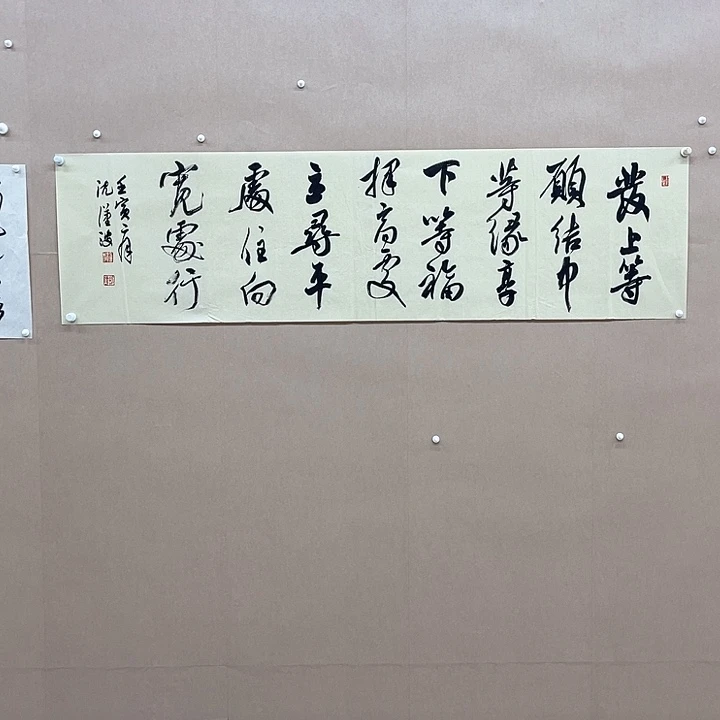 發上等
願結中
等緣享
下等福
擇高處
立尋平
處住向
寬處行
壬寅
沈漢波